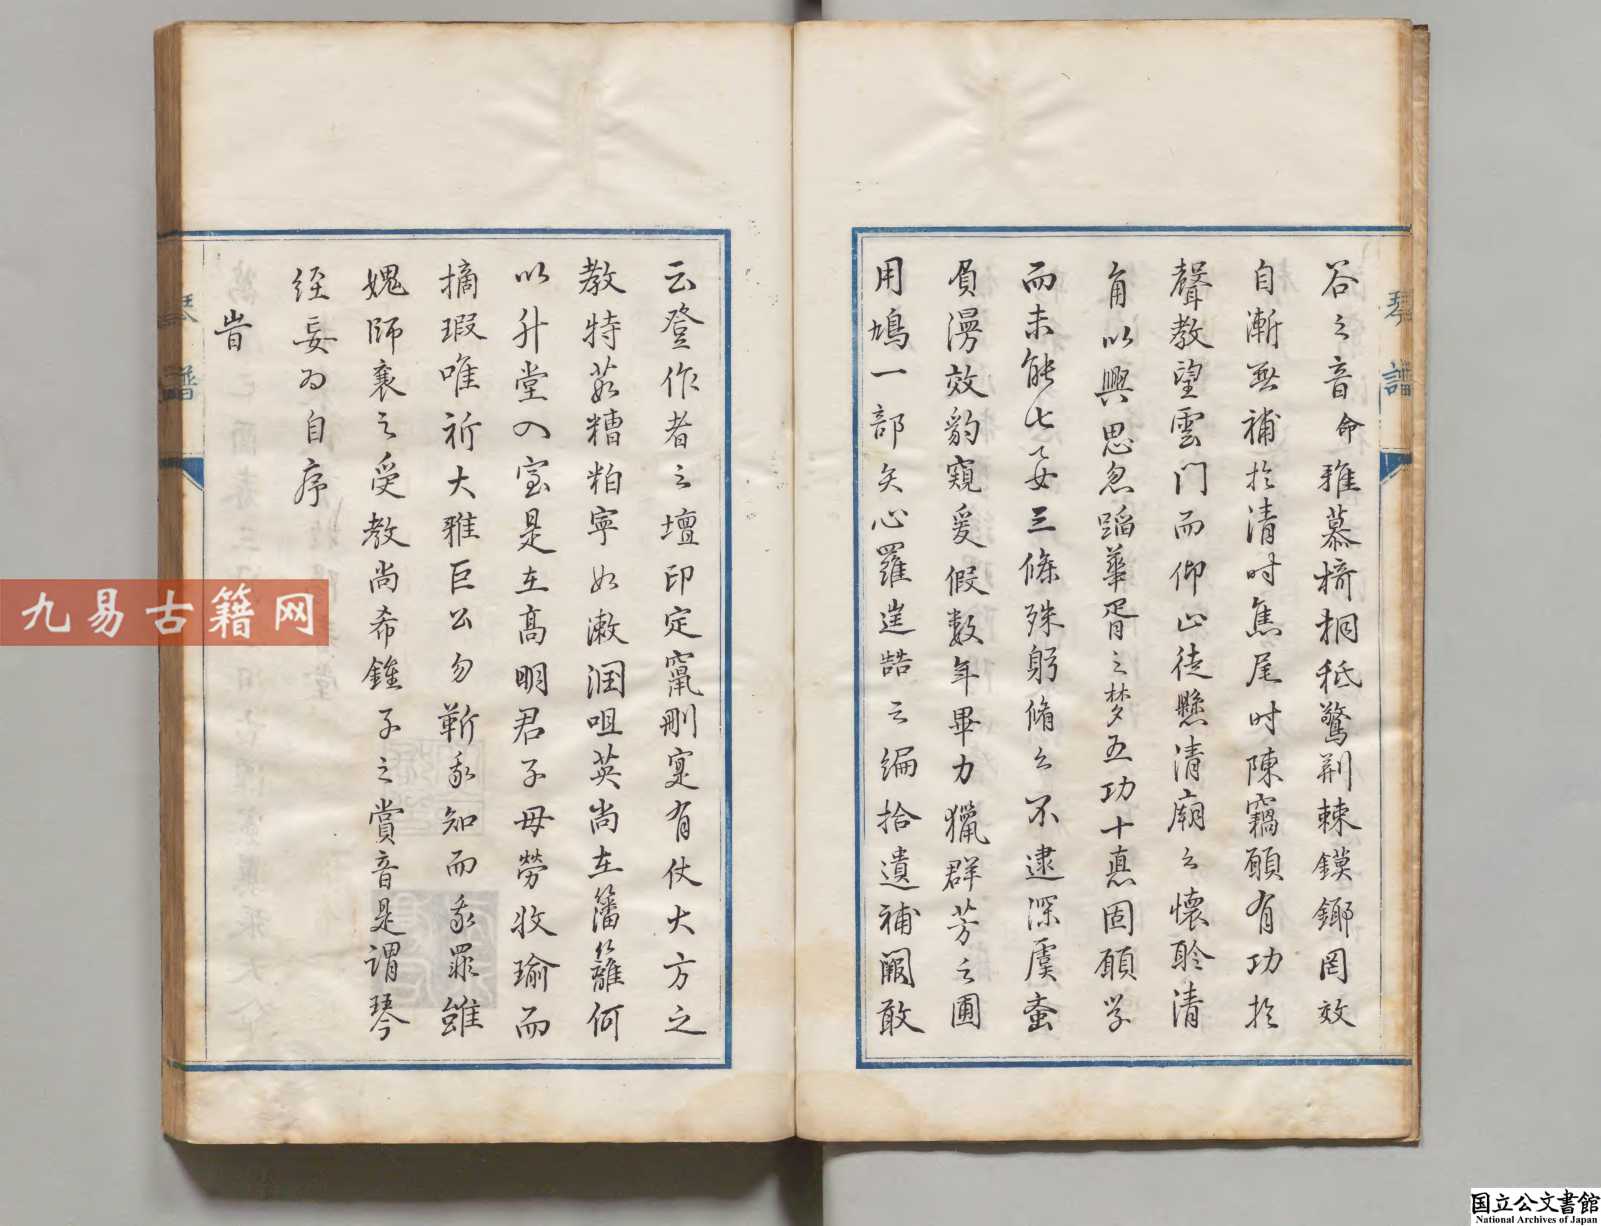 谷之音命雅慕椅桐秖驚荆棘鏌鎁罔效
自漸無補扵清时焦尾时陳竊願有功扵
聲教望雲门而仰止徒懸清廟之懐聆清
角以興思忽蹈華胥之梦五功十惪固願学
而未能七妄三條殊躬脩之不逮深虞蚕
負漫效豹窺爰假数年畢力獵群芳之圃
用鳩一部矢心羅逬誥之编拾遺補闕敢
云登作者之壇印定竄刪寔有仗大方之
教特茲糟粕寧如漱润咀英尚在籓籬何
以升堂入室是在髙明君子毋勞收瑜而
摘瑕唯祈大雅巨公勿靳我知而我罪雖
媿師襄之受教尚希鍾子之賞音是謂琴
经妄为自序
旹
琴譜
琴譜
九易古籍网
国立公文書館
National Archives of Japan